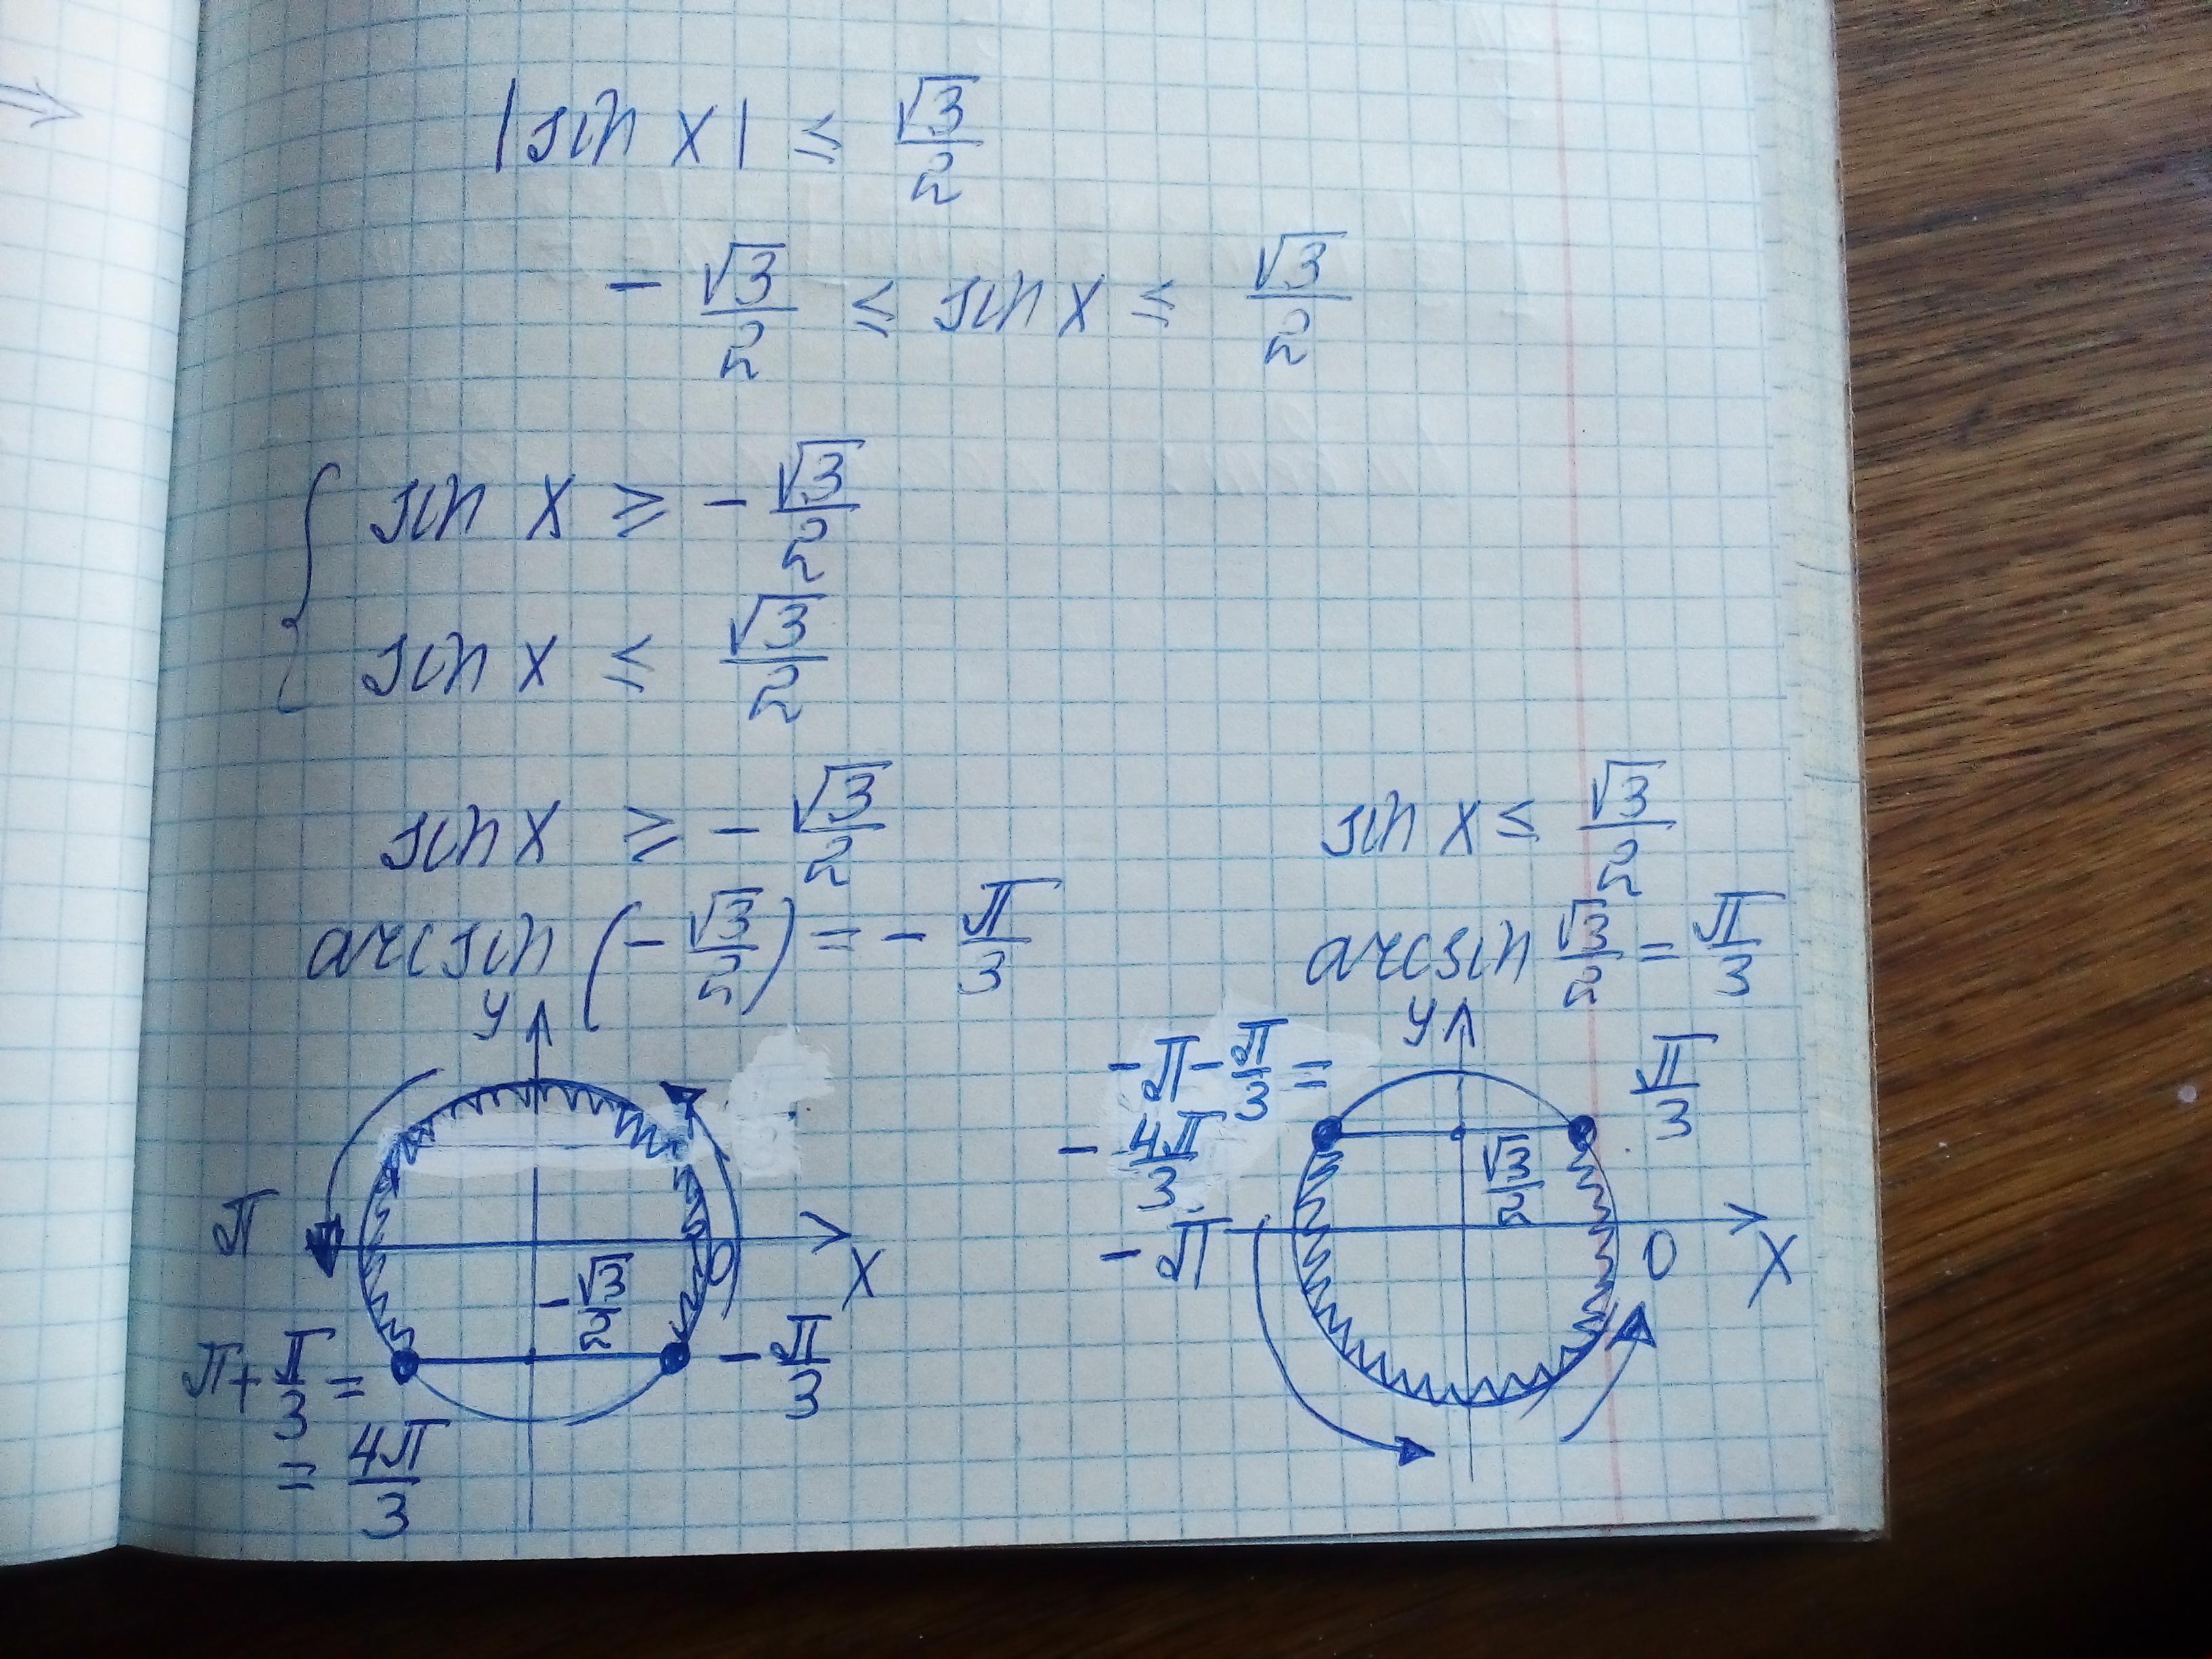 |sin x| ≤ √3/2
- √3/2 ≤ sin x ≤ √3/2
{ sin x ≥ - √3/2
sin x ≤ √3/2
sin x ≥ - √3/2
arcsin (- √3/2) = - π/3
y
π
0
x
- √3/2
π + π/3 =
= 4π/3
- π/3
sin x ≤ √3/2
arcsin √3/2 = π/3
y
-π - π/3 =
- 4π/3
π/3
√3/2
-π
0
x